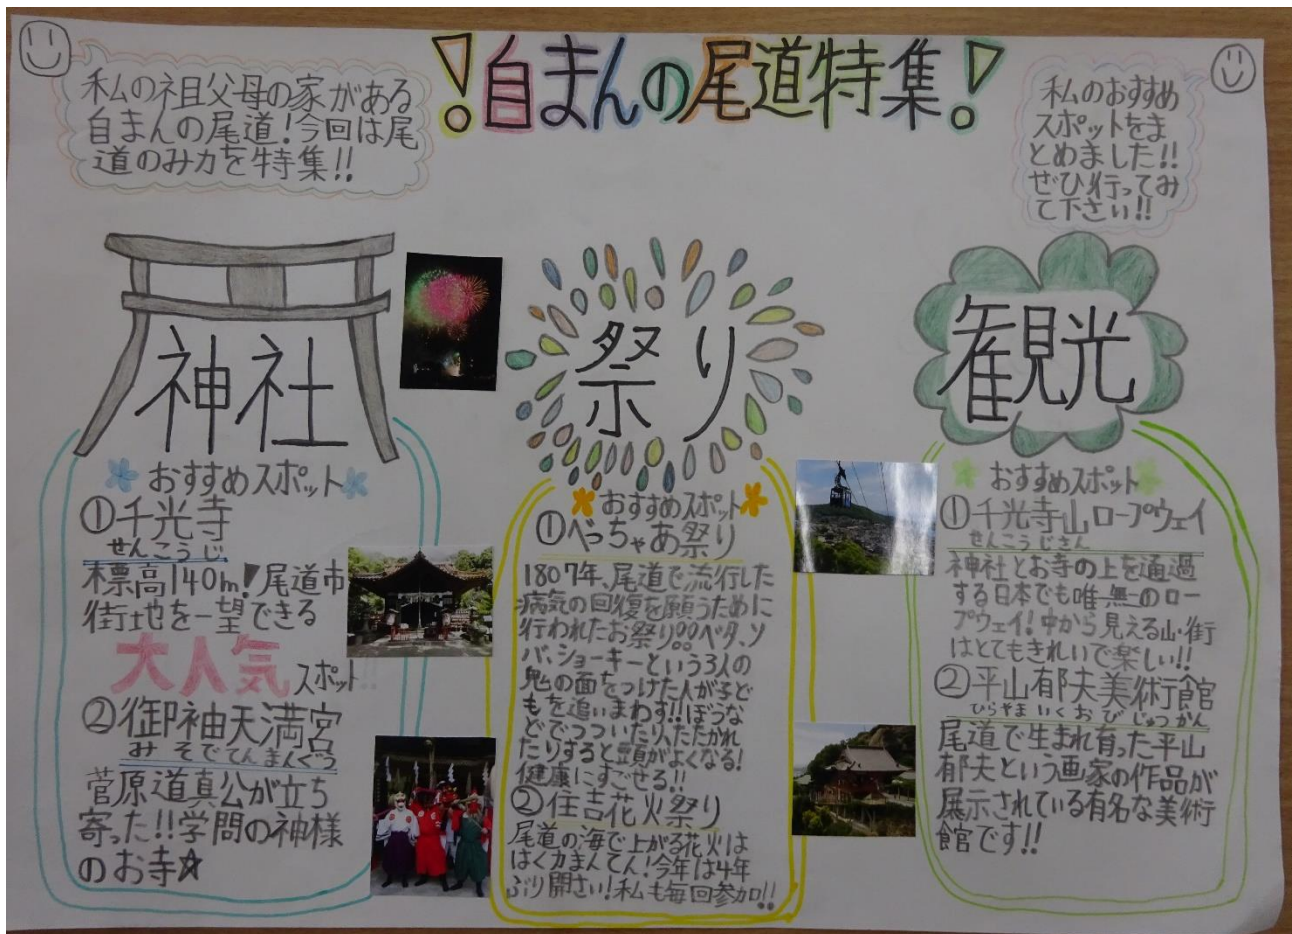 !自まんの尾道特集!
私の祖父母の家がある
自まんの尾道!今回は尾
道のみ力を特集!!
私のおすすめ
スポットをま
とめました!!
ぜひ行ってみ
て下さい!!
神社
おすすめスポット
①千光寺
せんこうじ
標高140m!尾道市
街地を一望できる
大人気スポット!!
②御袖天満宮
みそでてんまんぐう
菅原道真公が立ち
寄った!!学問の神様
のお寺☆
祭り
おすすめスポット
①べっちゃあ祭り
1807年、尾道で流行した
病気の回復を願うために
行われたお祭り。。ベタ、ソ
バ、ショーキーという3人の
鬼の面をつけた人が子ど
もを追いまわす!!ぼうな
どでつついたり、たたかれ
たりすると頭がよくなる!
健康にすごせる!!
②住吉花火祭り
尾道の海で上がる花火は
はく力まんてん!今年は4年
ぶり開さい!私も毎回参加!!
観光
おすすめスポット
①千光寺山ロープウェイ
せんこうじさん
神社とお寺の上を通過
する日本でも唯一無二のロー
プウェイ!中から見える山・街
はとてもきれいで楽しい!!
②平山郁夫美術館
ひらやまいくおびじゅつかん
尾道で生まれ育った平山
郁夫という画家の作品が
展示されている有名な美術
館です!!